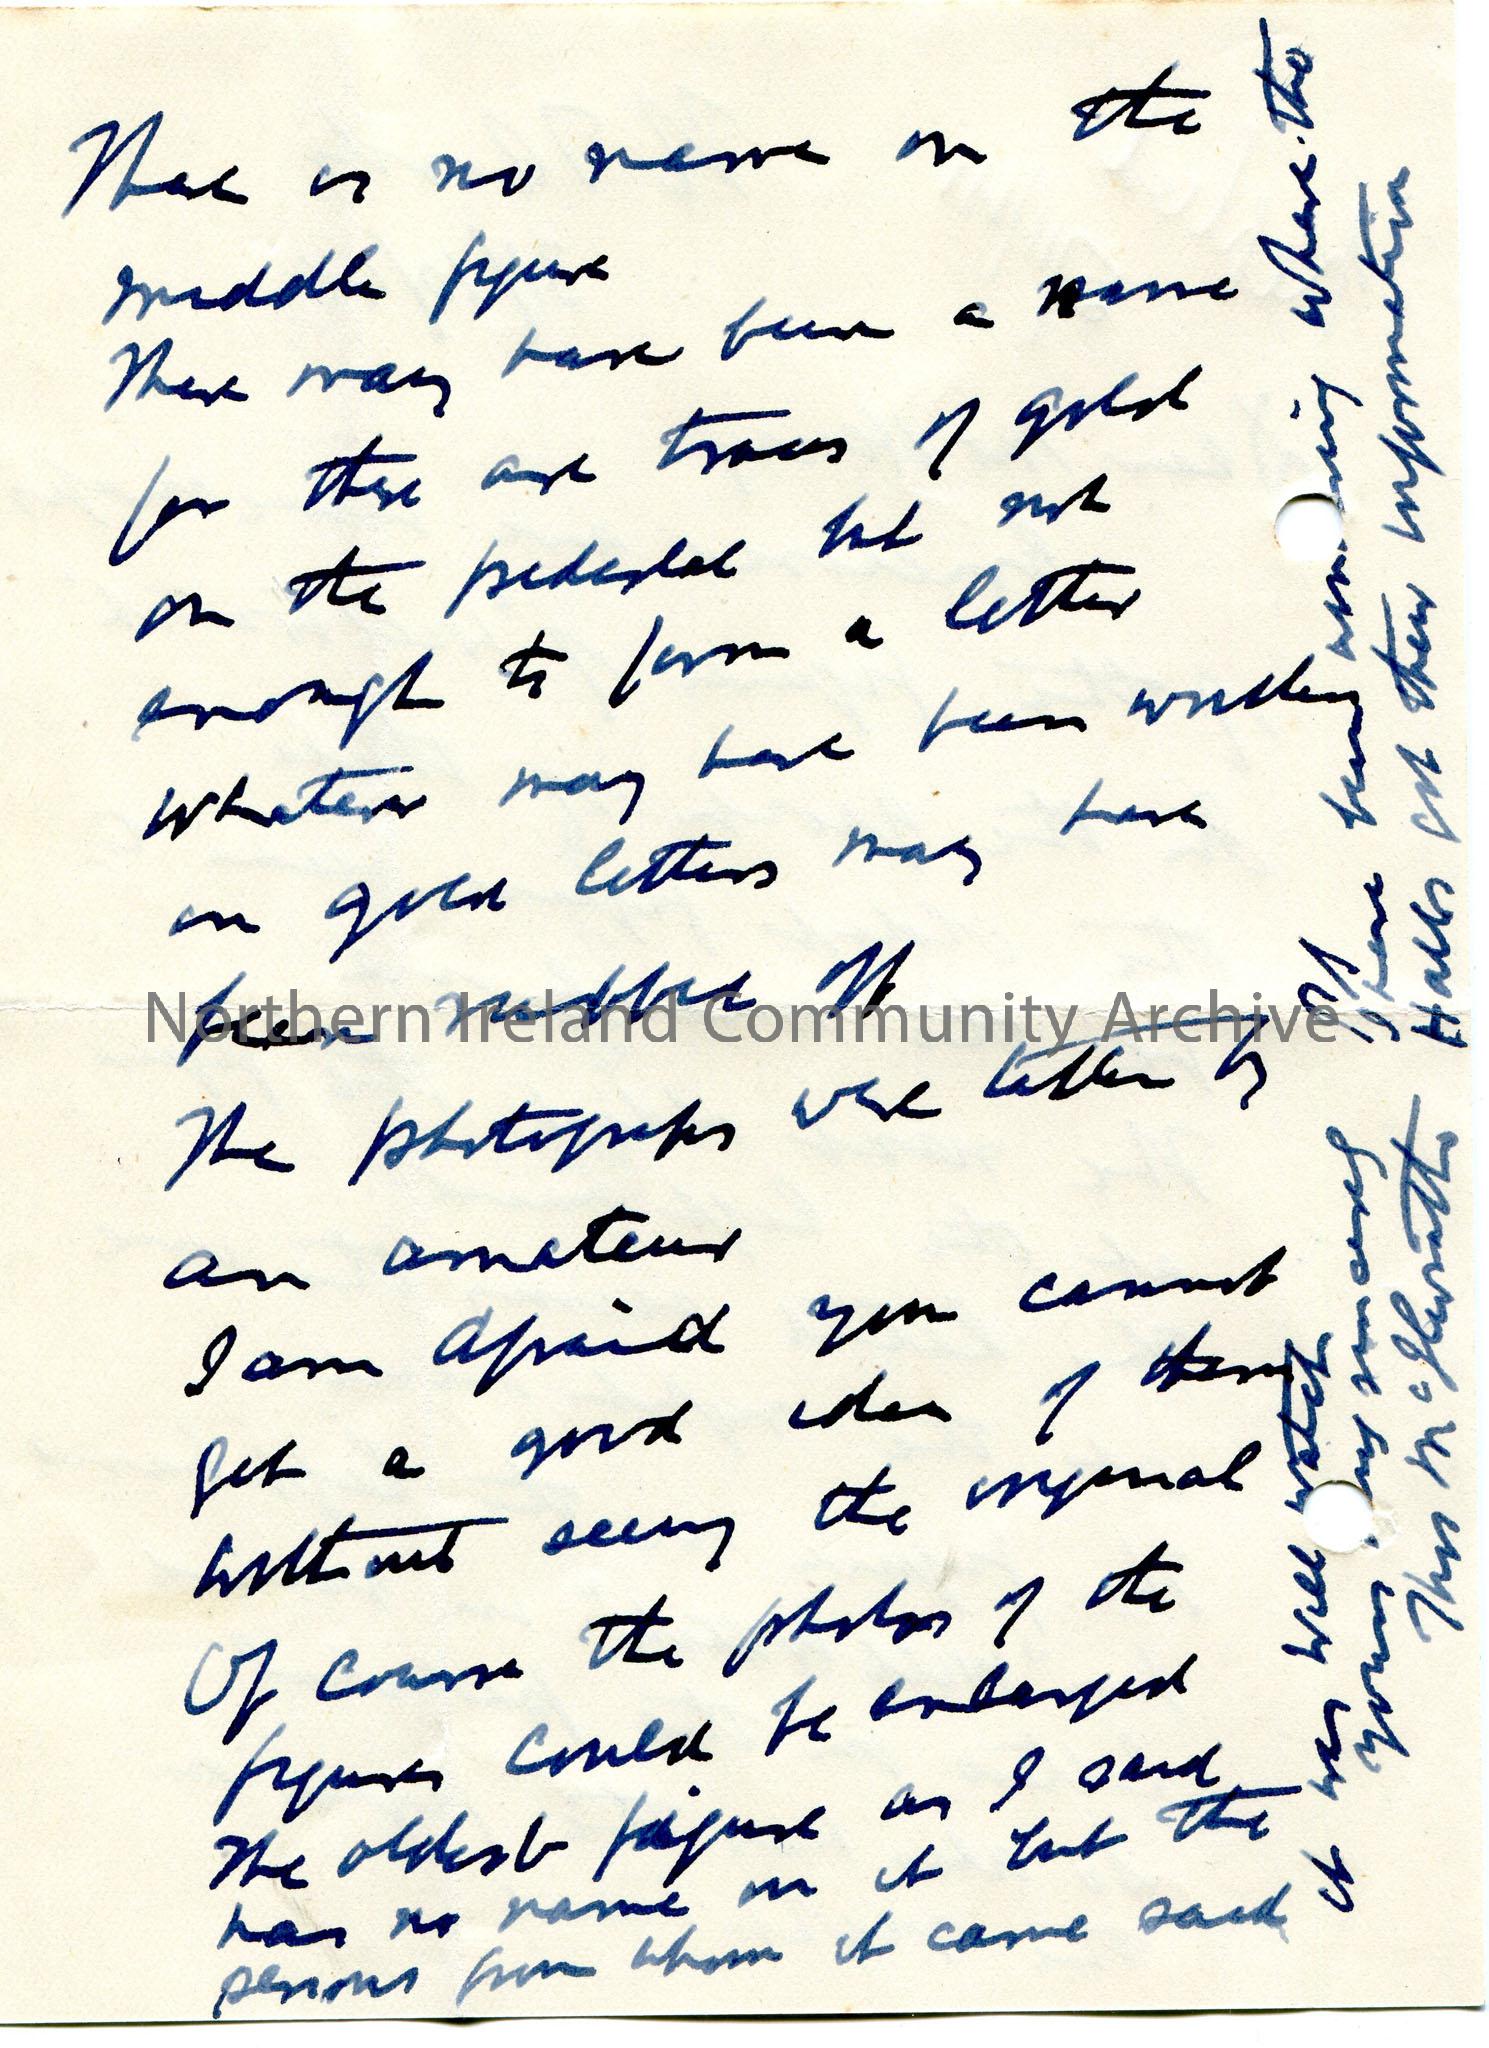 There is no name on the
middle figure
There may have been a name
for there are traces of gold
on the pedestal but not
enough to form a letter
Whatever may have been written
in gold letters may have
been rubbed off
The photographs were taken by
an amateur
I am afraid you cannot
get a good idea of them
without seeing the original
Of course the photos of the
figures could be enlarged
The oldest figure as I said
has no name on it but the
persons from whom it came said
it was Will Watch
yours very sincerely
Thos McIlwrath
I have been wondering where the
Halls got their information
Northern Ireland Community Archive